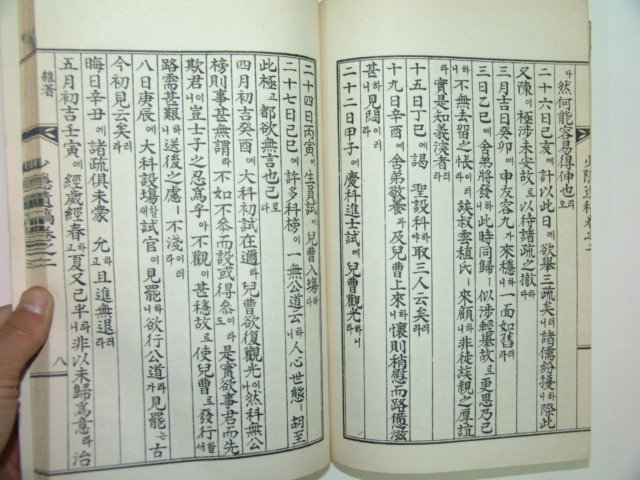 然何能容易得伸也
二十六日己亥에計以此日에欲擧三疏矣러니諸儒紛援하니際此
又陳이極涉未安故로以待諸疏之撤하다
三月吉日癸卯에申友容九가來穩하니一面如舊러라
三日乙巳에舍弟將發하니此時同歸 似涉輕擧故로更思乃已
하니不無去留之悵이러라 族叔雲植氏 來顧하니非徒族親之厚誼
라實是知義演者러라
十五日丁巳에謁聖設科하야取三人云矣러라
十九日辛酉에舍弟敬養과及兒曹上來하니懷則稍慰而路憊滋
甚하니見悶이러라
二十二日甲子에慶科進士試에兒曹觀光하니라
二十四日丙寅이生員試에兒曹入場하다
二十七日己巳에許多科榜이一無公道云하니人心世態 胡至
此極고都欲無言也已로다
四月初吉癸酉에大科初試在邇라兒曹欲復觀光이나然科無公
榜則事甚無謂라不如不參而設或得參이라도是實欲事君而先
欺君이니豈士子之忍爲乎아不觀이甚穩故로使兒曹로發行새할
路需甚艱하니送後之慮 不淺이러라
八日庚辰에大科設場새할試官이見罷하니欲行公道가見罷는古
今初見云矣러라
晦日辛丑에諸疏俱未蒙允하고且進無退러라
五月初吉壬寅에經歲經春하고夏又已半하니非以未歸爲意라治
雜著
少隱遺稿卷之二
八
少隱遺稿卷之二